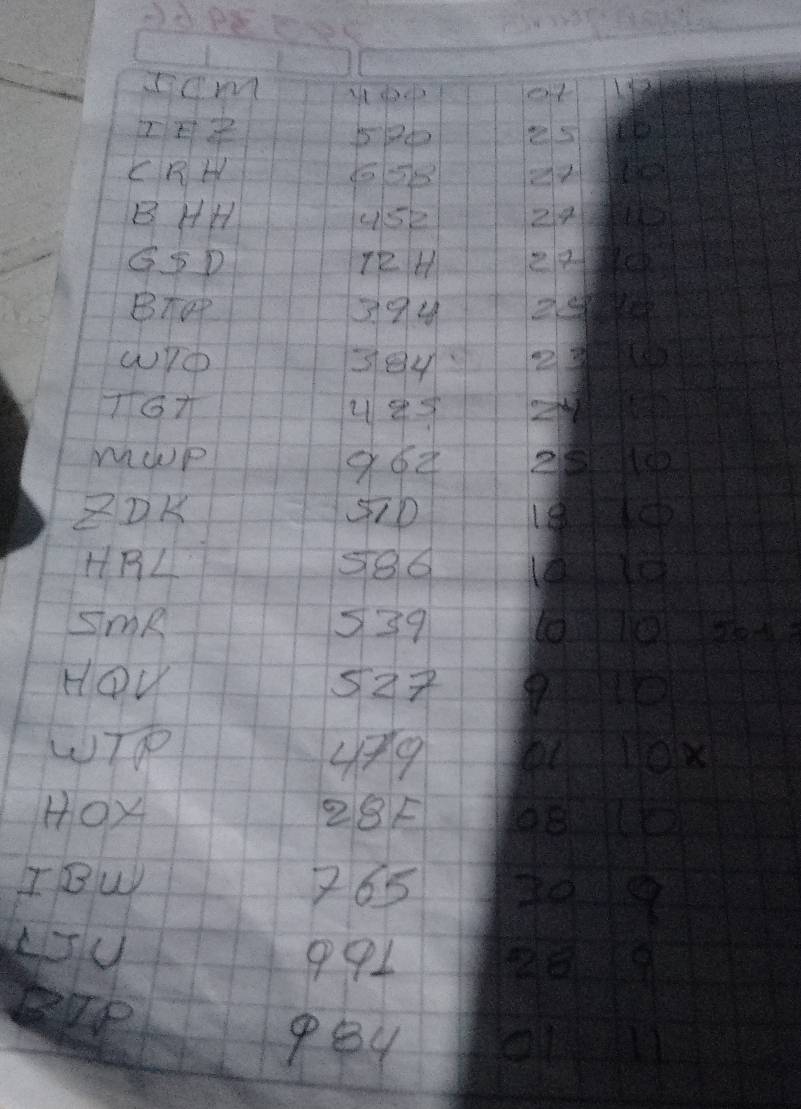 ICM 400 07 10
IEZ 570 25 10
CRH 658 27 10
BHH 452 27 10
GSD 12H 27 10
BTP 394 10
WTO 384 23 10
TGT 425 24 10
MWP 962 25 10
ZDK 51D 18 10
HRL 586 10 10
SMR 539 10 10
HQV 527 9 10
WTP 479 01 10 x
HOX 28F 08 10
IBW 765 30 9
LJU 991 28 9
BTP 984 01 11